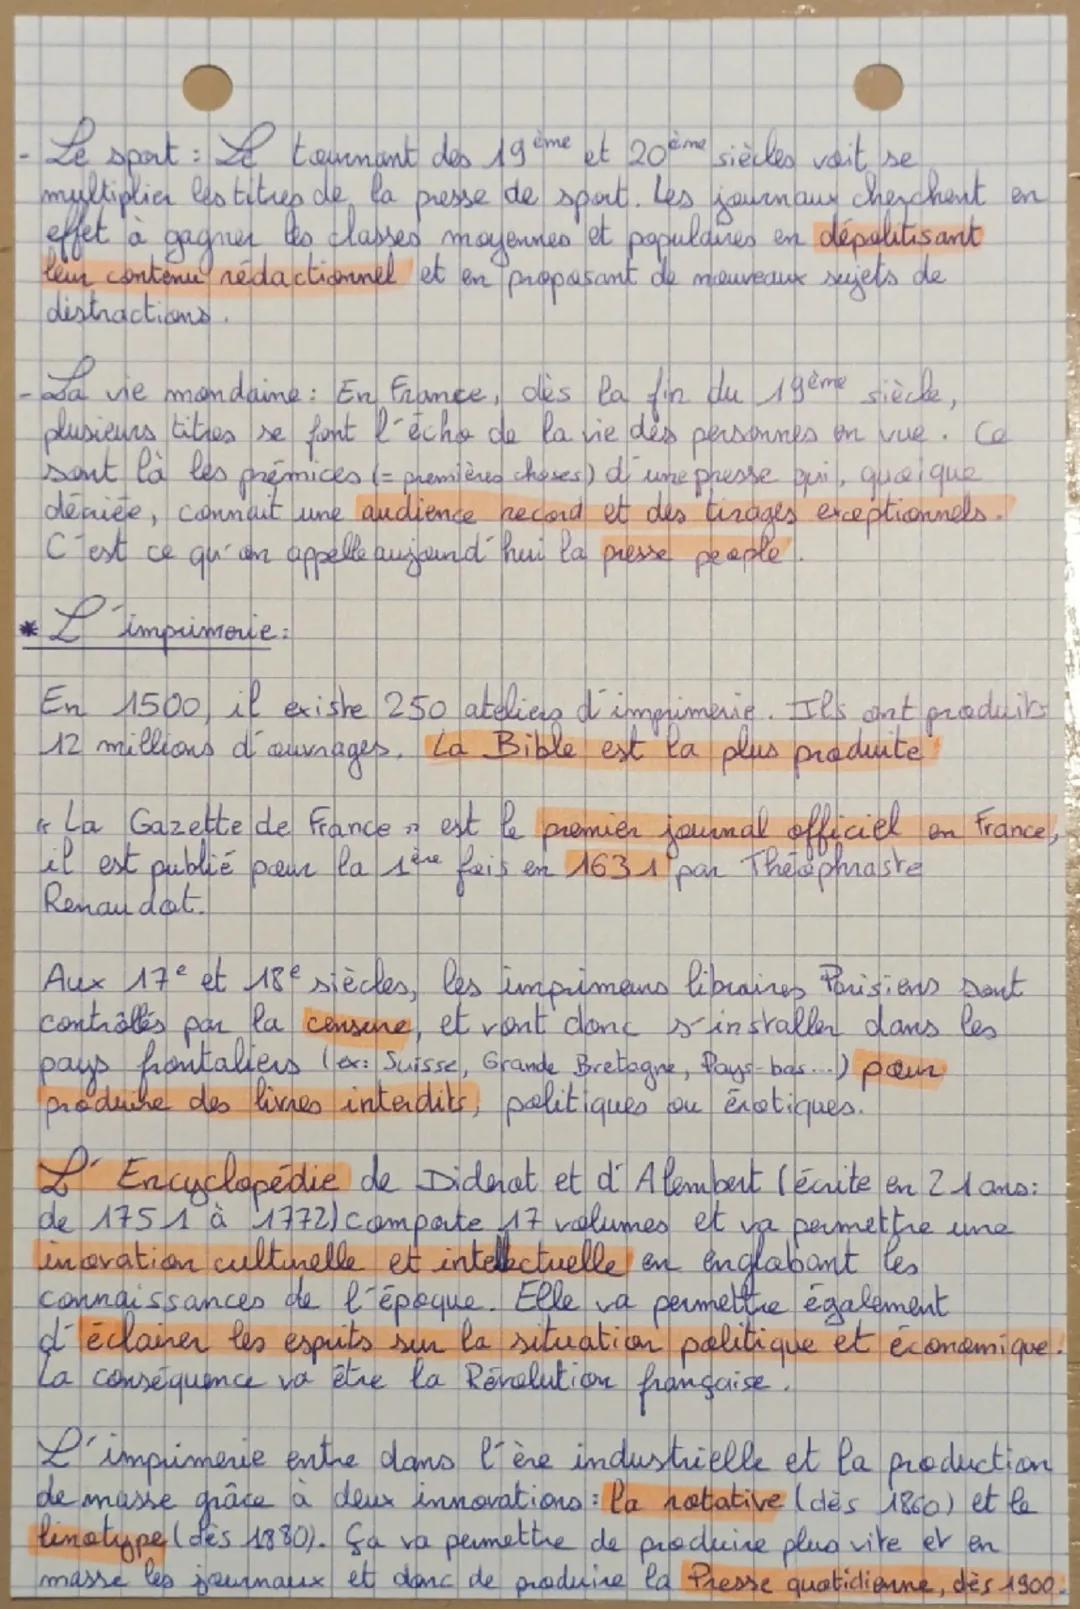 - Le sport : Le tournant des 19ème et 20ème siècles voit se
multiplier les titres de la presse de sport. Les journaux cherchent en
effet à gagner les classes moyennes et populaires en dépolitisant
leur contenu rédactionnel et en proposant de nouveaux sujets de
distractions.
- La vie mondaine : En France, dès la fin du 19ème siècle,
plusieurs titres se font l'écho de la vie des personnes en vue. Ce
sont là les prémices (= premières choses) d'une presse qui, quoique
décriée, connait une audience record et des tirages exceptionnels.
C'est ce qu'on appelle aujourd'hui la presse people.
* L'imprimerie :
En 1500, il existe 250 ateliers d'imprimerie. Ils ont produits
12 millions d'ouvrages. La Bible est la plus produite
« La Gazette de France » est le premier journal officiel en France,
il est publié pour la 1ère fois en 1631 par Théophraste
Renaudot.
Aux 17e et 18e siècles, les imprimeurs libraires Parisiens sont
contrôlés par la censure, et vont donc s'installer dans les
pays frontaliers (ex: Suisse, Grande Bretagne, Pays-bas...) pour
produire des livres interdits, politiques ou érotiques.
L'Encyclopédie de Diderot et d'Alembert (écrite en 21 ans :
de 1751 à 1772) comporte 17 volumes et va permettre une
inovation culturelle et intellectuelle en englobant les
connaissances de l'époque. Elle va permettre également
d'éclairer les esprits sur la situation politique et économique.
La conséquence va être la Révolution française.
L'imprimerie entre dans l'ère industrielle et la production
de masse grâce à deux innovations : la rotative (dès 1860) et le
linotype (dès 1880). Ça va permettre de produire plus vite et en
masse les journaux et donc de produire la Presse quotidienne, dès 1900.